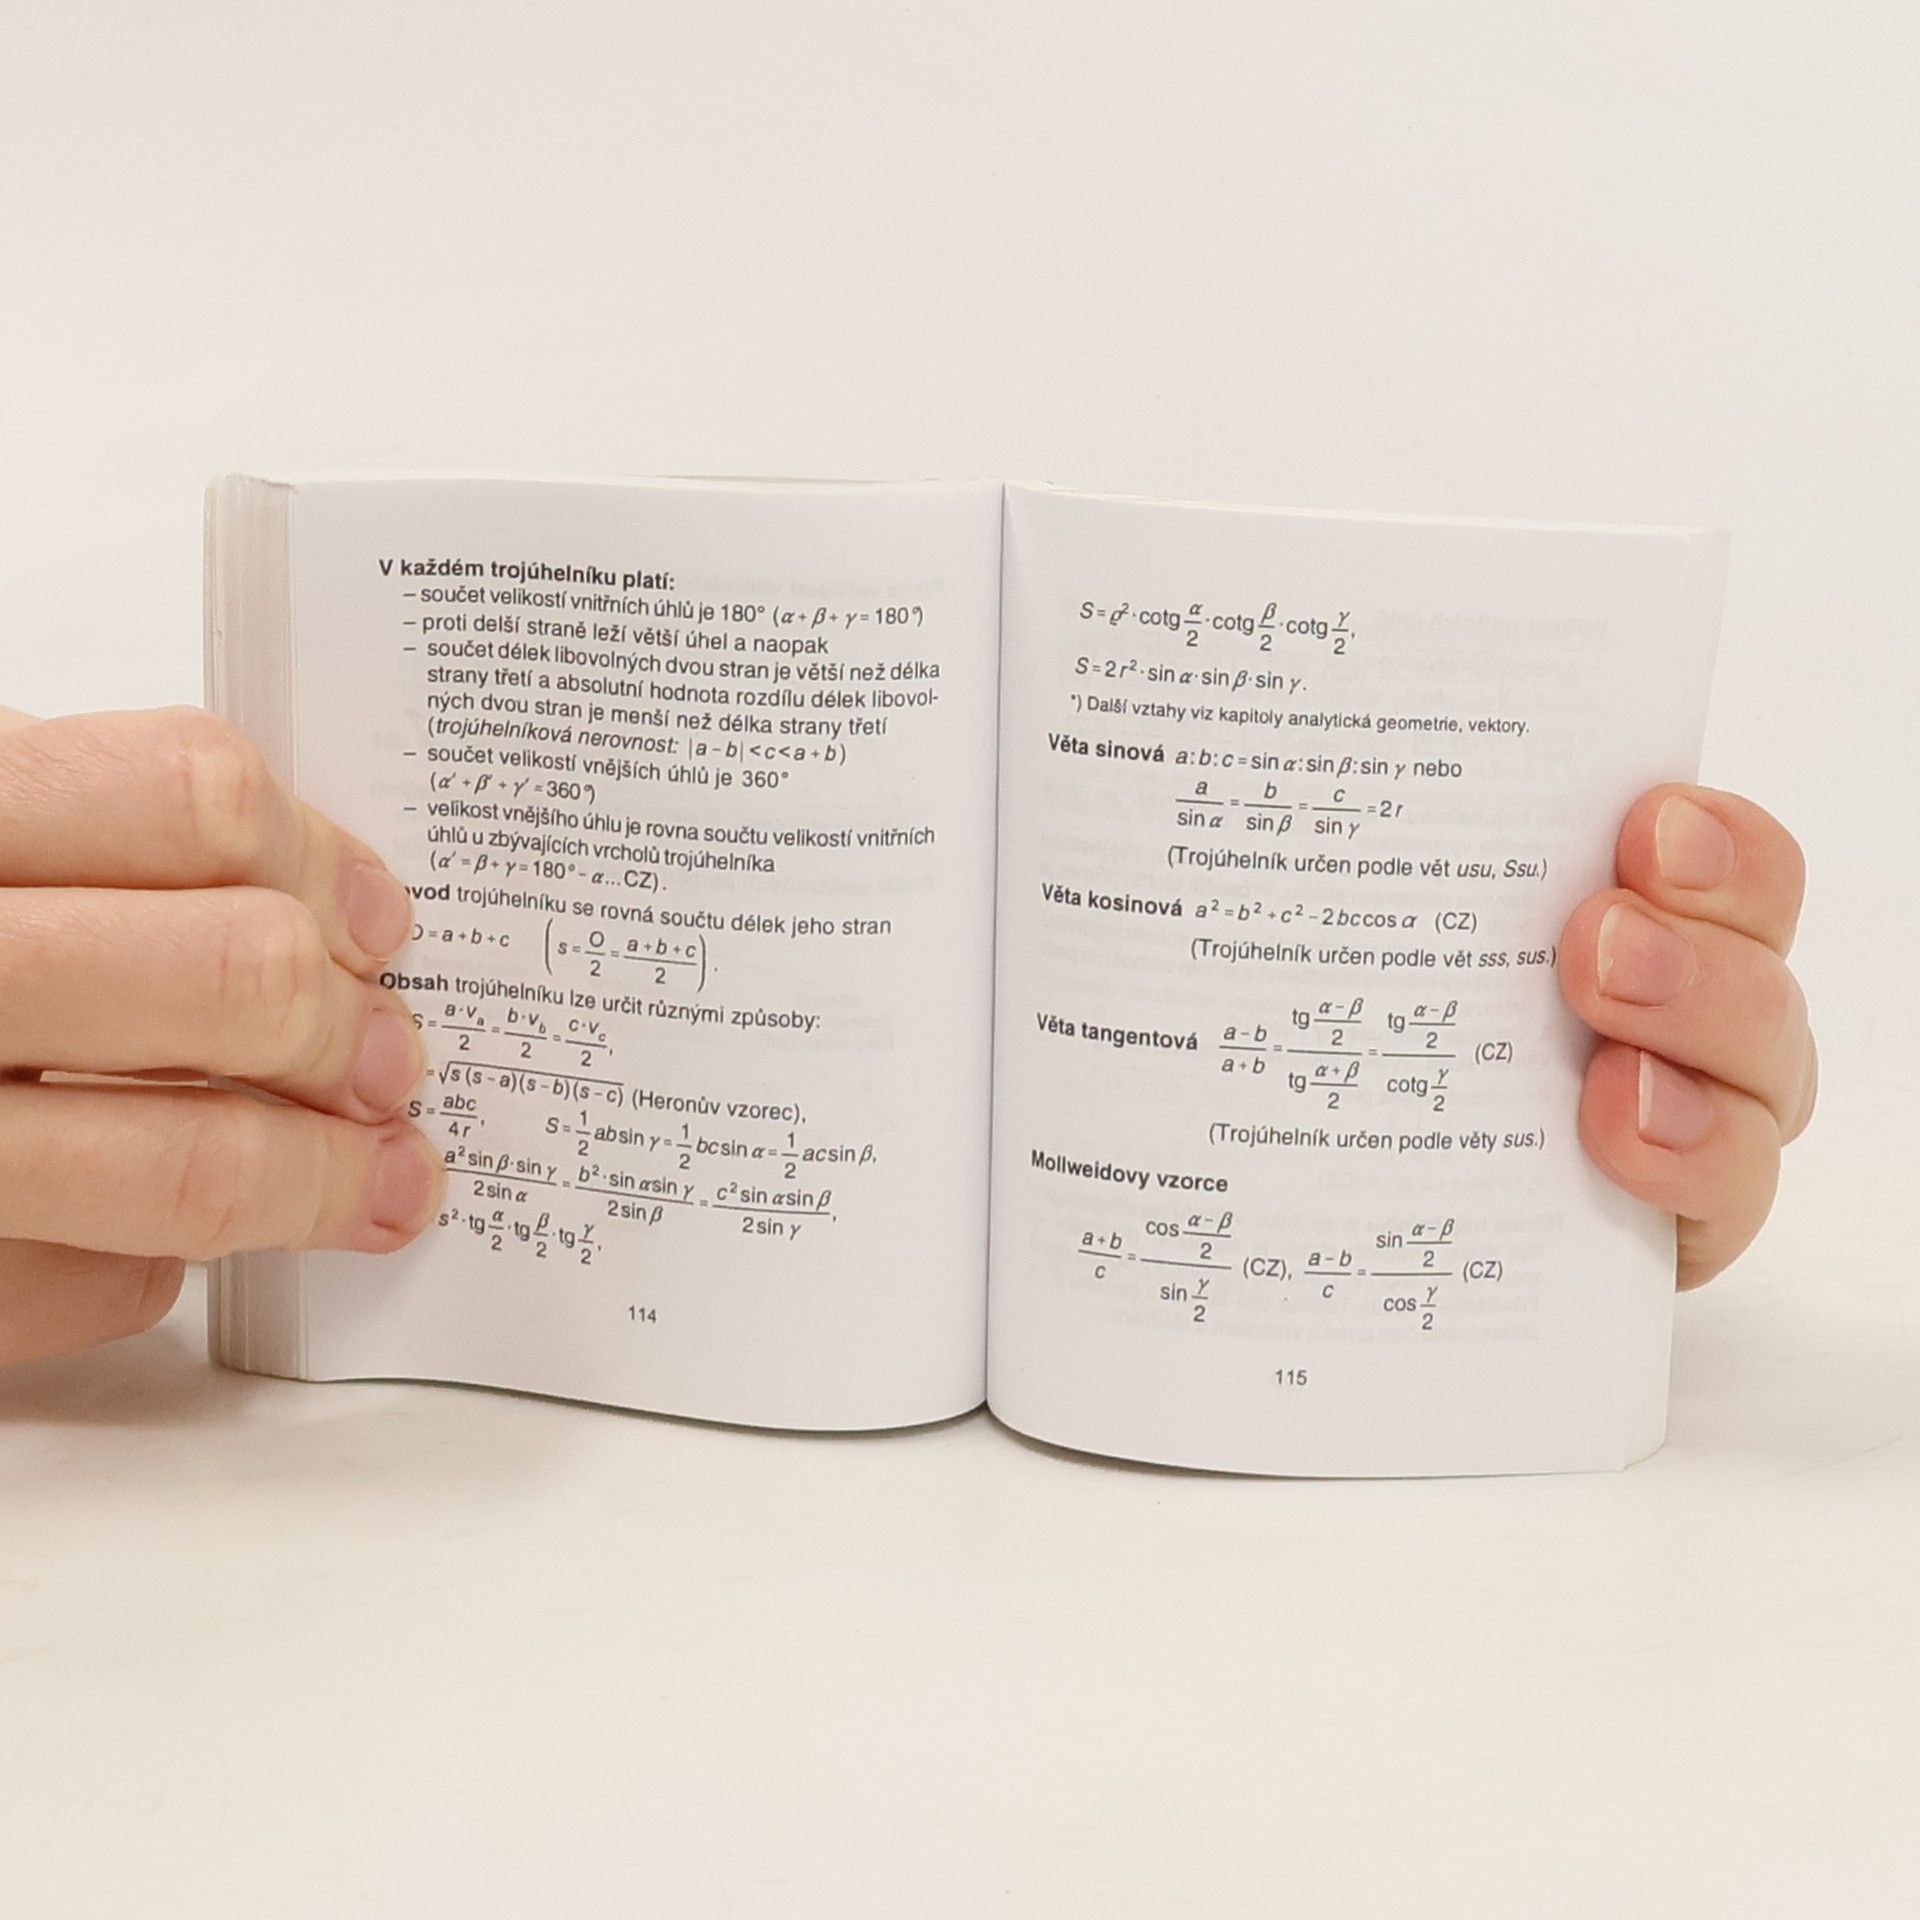 V každém trojúhelníku platí:
– součet velikostí vnitřních úhlů je 180° (α + β + γ = 180°)
– proti delší straně leží větší úhel a naopak
– součet délek libovolných dvou stran je větší než délka
strany třetí a absolutní hodnota rozdílu délek libovol-
ných dvou stran je menší než délka strany třetí
(trojúhelníková nerovnost: |a - b| < c < a + b)
– součet velikostí vnějších úhlů je 360°
(α' + β' + γ' = 360°)
– velikost vnějšího úhlu je rovna součtu velikostí vnitřních
úhlů u zbývajících vrcholů trojúhelníka
(α' = β + γ = 180° - α...CZ).
vod trojúhelníku se rovná součtu délek jeho stran
O = a + b + c (s = O/2 = (a + b + c)/2).
Obsah trojúhelníku lze určit různými způsoby:
S = a·vₐ/2 = b·v_b/2 = c·v_c/2,
= √(s (s - a)(s - b)(s - c)) (Heronův vzorec),
S = abc/4r, S = 1/2 absin γ = 1/2 bcsin α = 1/2 acsin β,
a² sin β·sin γ/2 sin α = b²·sin αsin γ/2 sin β = c² sin αsin β/2 sin γ,
s²·tg α/2·tg β/2·tg γ/2,
114
S = ϱ²·cotg α/2·cotg β/2·cotg γ/2,
S = 2r²·sin α·sin β·sin γ.
*) Další vztahy viz kapitoly analytická geometrie, vektory.
Věta sinová a : b : c = sin α : sin β : sin γ nebo
a/sin α = b/sin β = c/sin γ = 2r
(Trojúhelník určen podle vět usu, Ssu.)
Věta kosinová a² = b² + c² - 2bccos α (CZ)
(Trojúhelník určen podle vět sss, sus.)
Věta tangentová (a - b)/(a + b) = (tg (α - β)/2)/(tg (α + β)/2) = (tg (α - β)/2)/(cotg γ/2) (CZ)
(Trojúhelník určen podle věty sus.)
Mollweidovy vzorce
(a + b)/c = (cos (α - β)/2)/(sin γ/2) (CZ), (a - b)/c = (sin (α - β)/2)/(cos γ/2) (CZ)
115